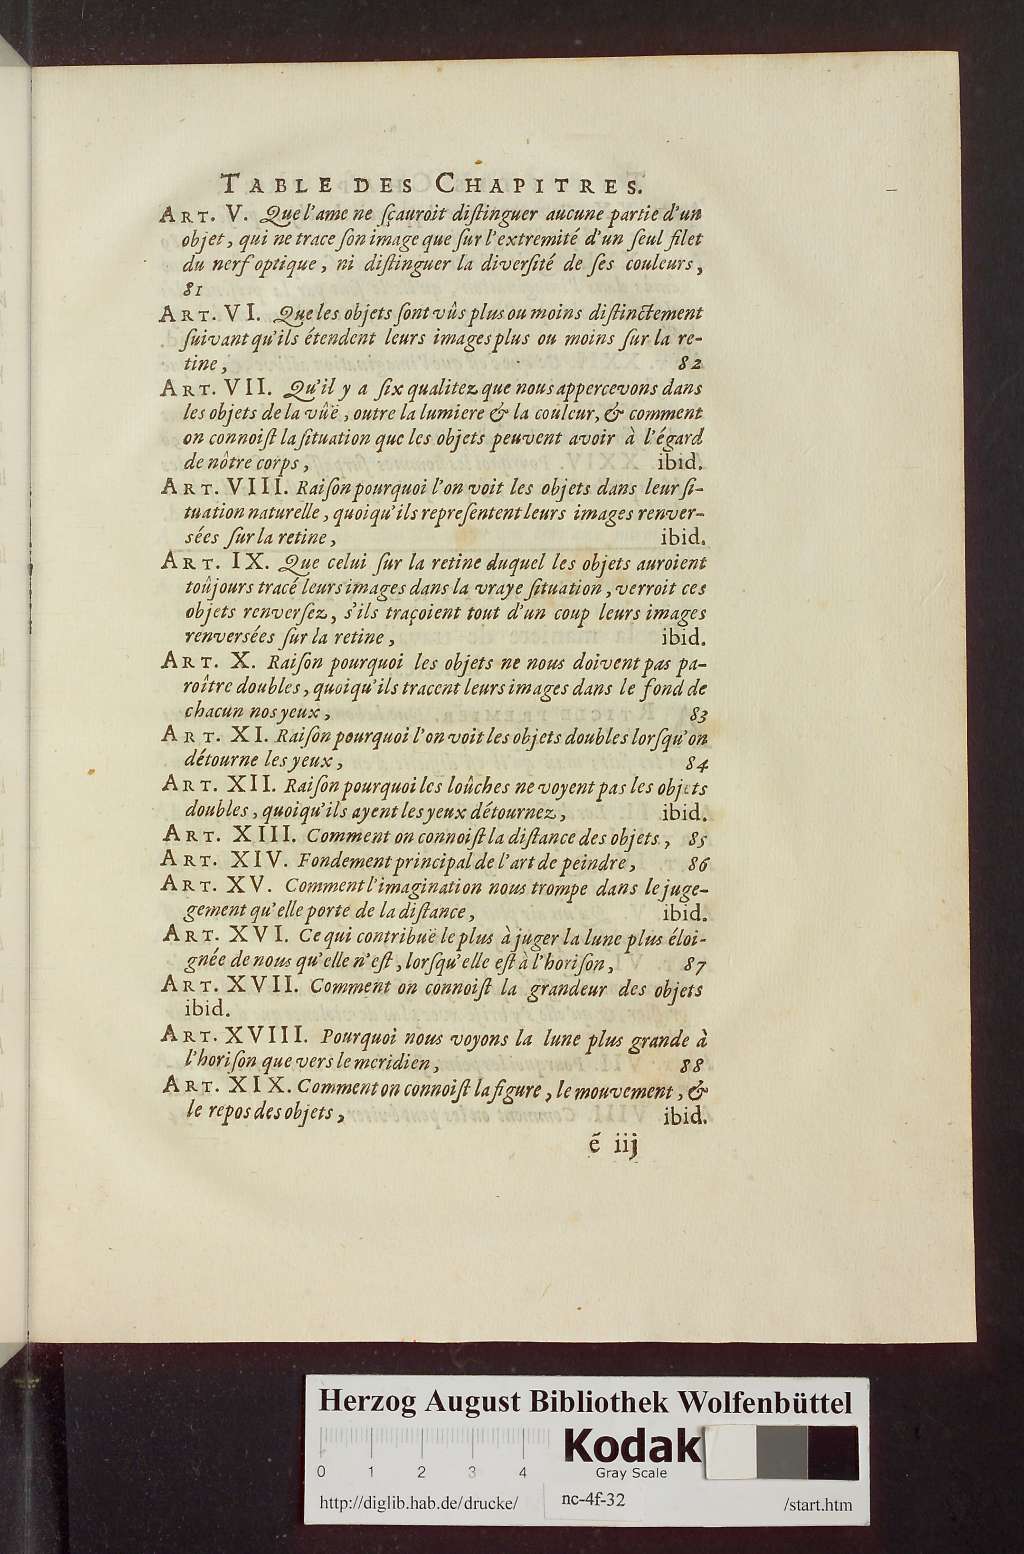 TABLE DES CHAPITRES.
ART. V. Que l'ame ne ſçauroit diſtinguer aucune partie d'un
objet, qui ne trace ſon image que ſur l'extremité d'un ſeul filet
du nerf optique, ni diſtinguer la diverſité de ſes couleurs,
81
ART. VI. Que les objets ſont vûs plus ou moins diſtinctement
ſuivant qu'ils étendent leurs images plus ou moins ſur la re-
tine, 82
ART. VII. Qu'il y a ſix qualitez que nous appercevons dans
les objets de la vûë, outre la lumiere & la couleur, & comment
on connoiſt la ſituation que les objets peuvent avoir à l'égard
de nôtre corps, ibid.
ART. VIII. Raiſon pourquoi l'on voit les objets dans leur ſi-
tuation naturelle, quoiqu'ils repreſentent leurs images renver-
sées ſur la retine, ibid.
ART. IX. Que celui ſur la retine duquel les objets auroient
toûjours tracé leurs images dans la vraye ſituation, verroit ces
objets renverſez, s'ils traçoient tout d'un coup leurs images
renversées ſur la retine, ibid.
ART. X. Raiſon pourquoi les objets ne nous doivent pas pa-
roître doubles, quoiqu'ils tracent leurs images dans le fond de
chacun nos yeux, 83
ART. XI. Raiſon pourquoi l'on voit les objets doubles lorſqu'on
détourne les yeux, 84
ART. XII. Raiſon pourquoi les loûches ne voyent pas les objets
doubles, quoiqu'ils ayent les yeux détournez, ibid.
ART. XIII. Comment on connoiſt la diſtance des objets, 85
ART. XIV. Fondement principal de l'art de peindre, 86
ART. XV. Comment l'imagination nous trompe dans le juge-
gement qu'elle porte de la diſtance, ibid.
ART. XVI. Ce qui contribuë le plus à juger la lune plus éloi-
gnée de nous qu'elle n'eſt, lorſqu'elle eſt à l'horiſon, 87
ART. XVII. Comment on connoiſt la grandeur des objets
ibid.
ART. XVIII. Pourquoi nous voyons la lune plus grande à
l'horiſon que vers le meridien, 88
ART. XIX. Comment on connoiſt la figure, le mouvement, &
le repos des objets, ibid.
é iij
Herzog August Bibliothek Wolfenbüttel
Kodak
Gray Scale
0 1 2 3 4
http://diglib.hab.de/drucke/ nc-4f-32 /start.htm